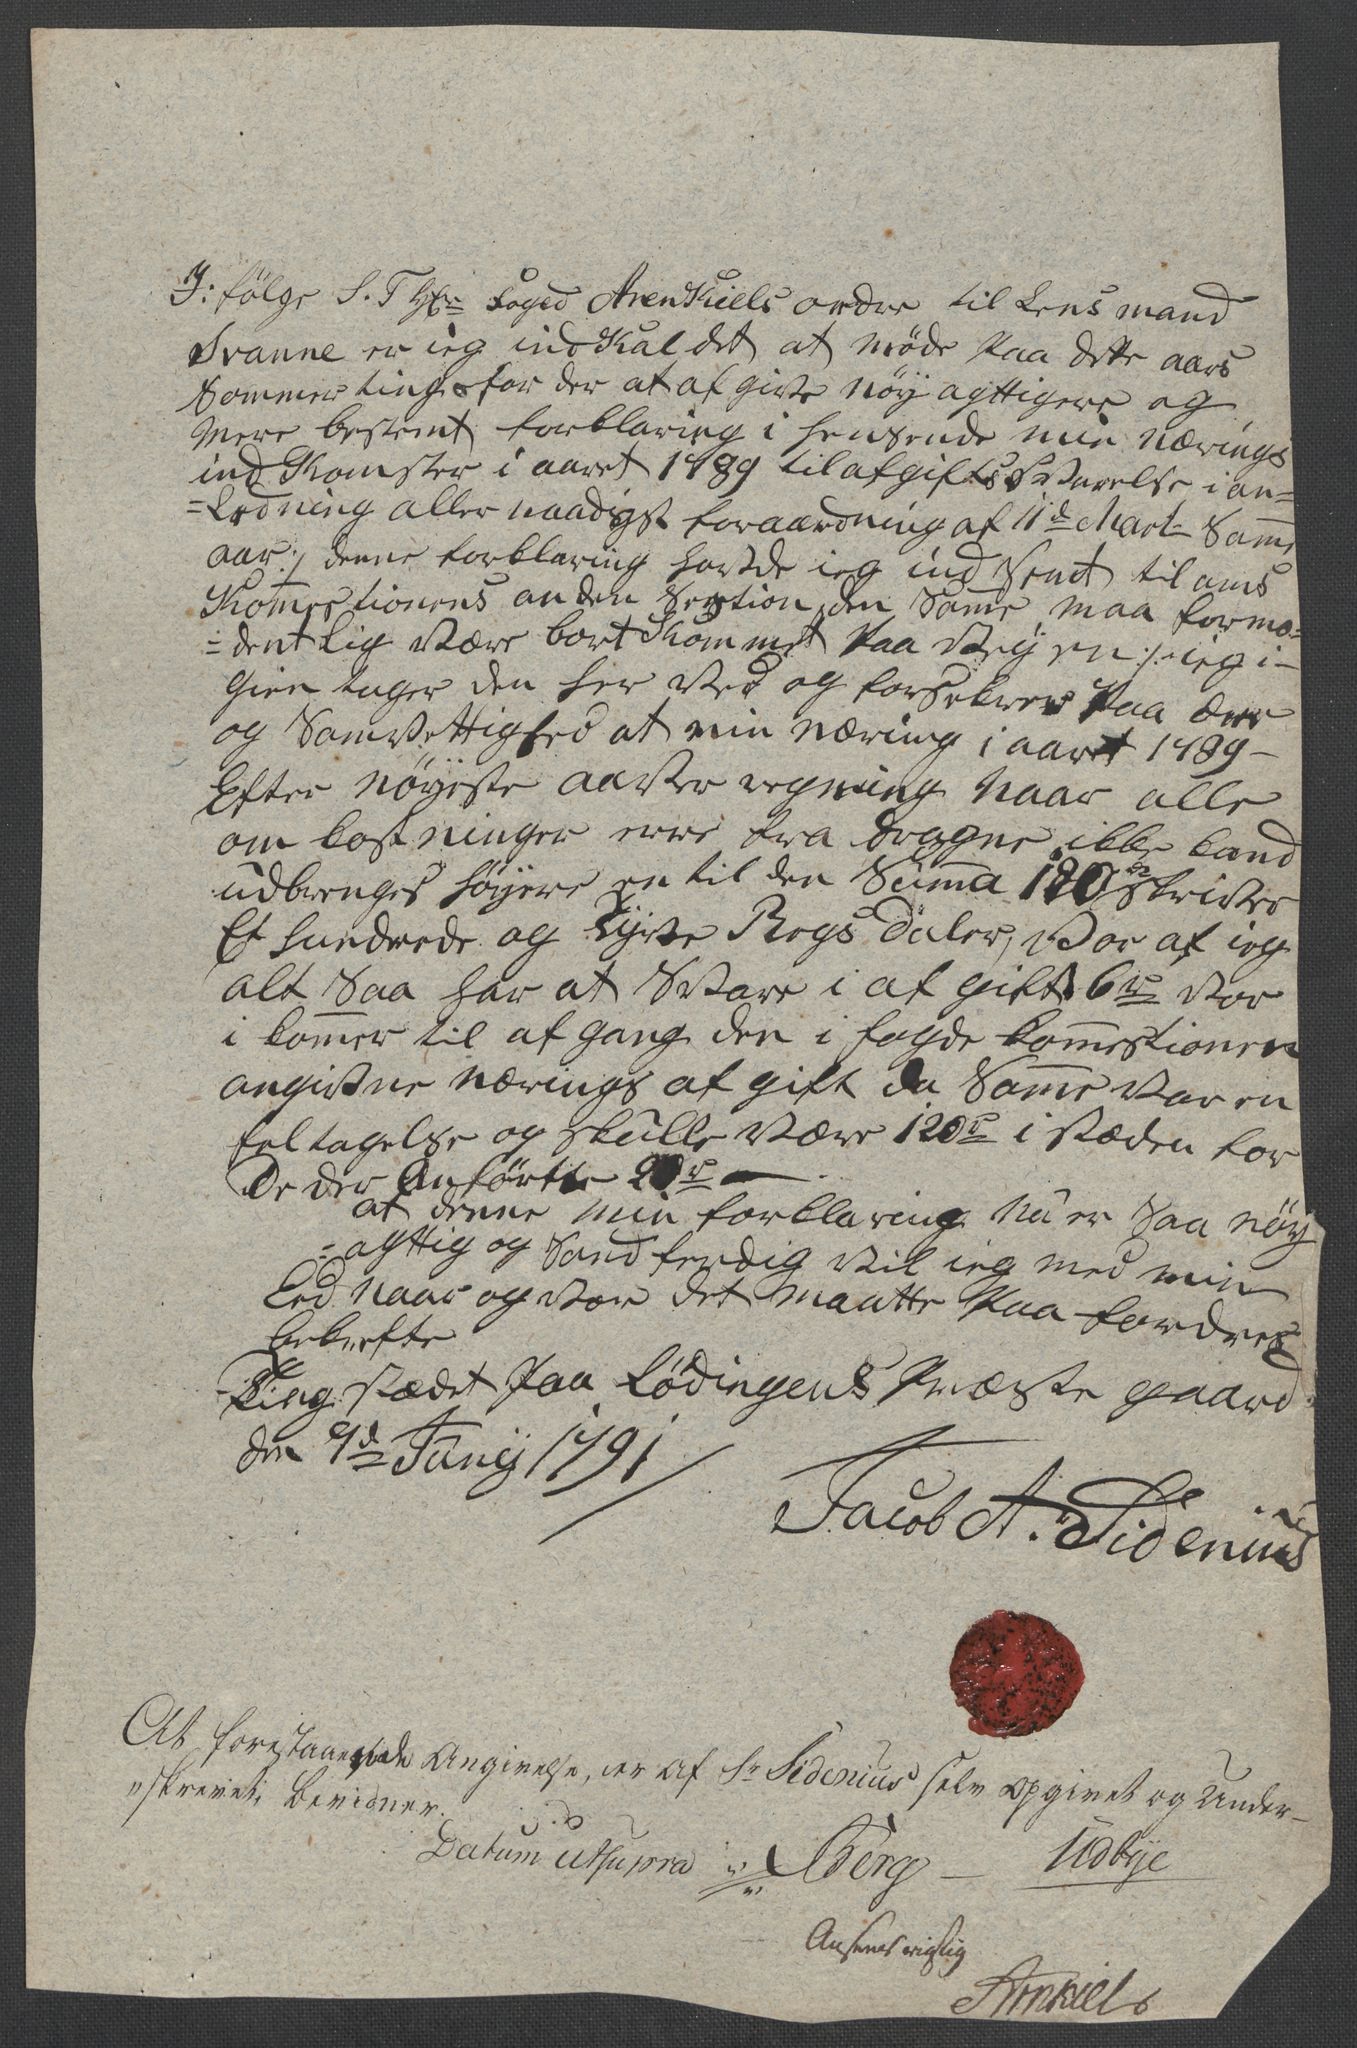 I: følge S. T Hr: Foged ArenKiels ordre til Lens mand
Svanne er ieg ind Kaldet at møde Paa dette aars
Sommer ting for der at af give Nøy agttigere og
Mere bestemt forklaring i hensende min Nærings
ind Komster i aaret 1789 til afgifts svarelse i an=
=Ledning aller naadigst foraardning af 11d Mart: Samme
aar. / denne forklaring havde ieg ind sendt til ams
Komestionens anden Section, den Samme maa formo=
=dentlig være bort Kommet Paa Vey en ./. ieg i-
gien tager den her Ved og forsekrer Paa ære
og Samvettighed at min Næring i aaret 1789 -
Efter Nøyeste aaver regning Naar alle
om kostninger erre fra dragne ikke kand
udbrenges høyere en til den Summa 120 rd skriver
Et hundrede og Tyve Regs daler, Vor af ieg
alt Saa har at Svare i af gift 6 rd Vor
i komer til af gang den i fogde komestionen
angivne Nærings af gift da Samme Var en
feltagelse og skulle være 120 rd i stæden for
De der Anførtte rd
at denne min forklaring Nu er Saa Nøy
=agttig og Sand ferdig Vil ieg med min
Eed Naar og Vor det maatte Paa fordres
bekrefte
Ting stædet Paa Lødingens Præste gaard
den 9d Juny 1791
Jacob A. Sidenius
At forestaaende Angivelse, er af Sr Sidenius selv opgivet og Under-
"skrevet; Bevidner.
Datum ut supra Berg - Udbye
Ansees rigtig
Arnkiels